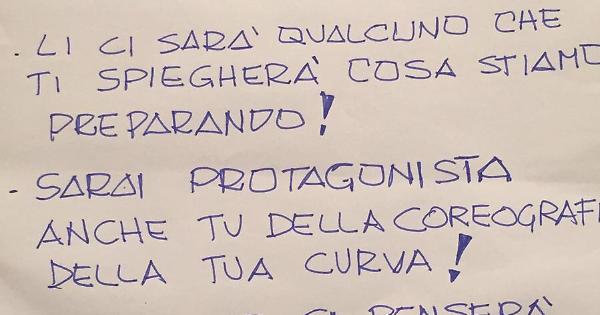 . LI CI SARA' QUALCUNO CHE
TI SPIEGHERÀ COSA STIAMO
PREPARANDO!
- SARAI PROTAGONISTA
ANCHE TU DELLA COREOGRAFI
DELLA TUA CURVA!
CI PENSERÀ